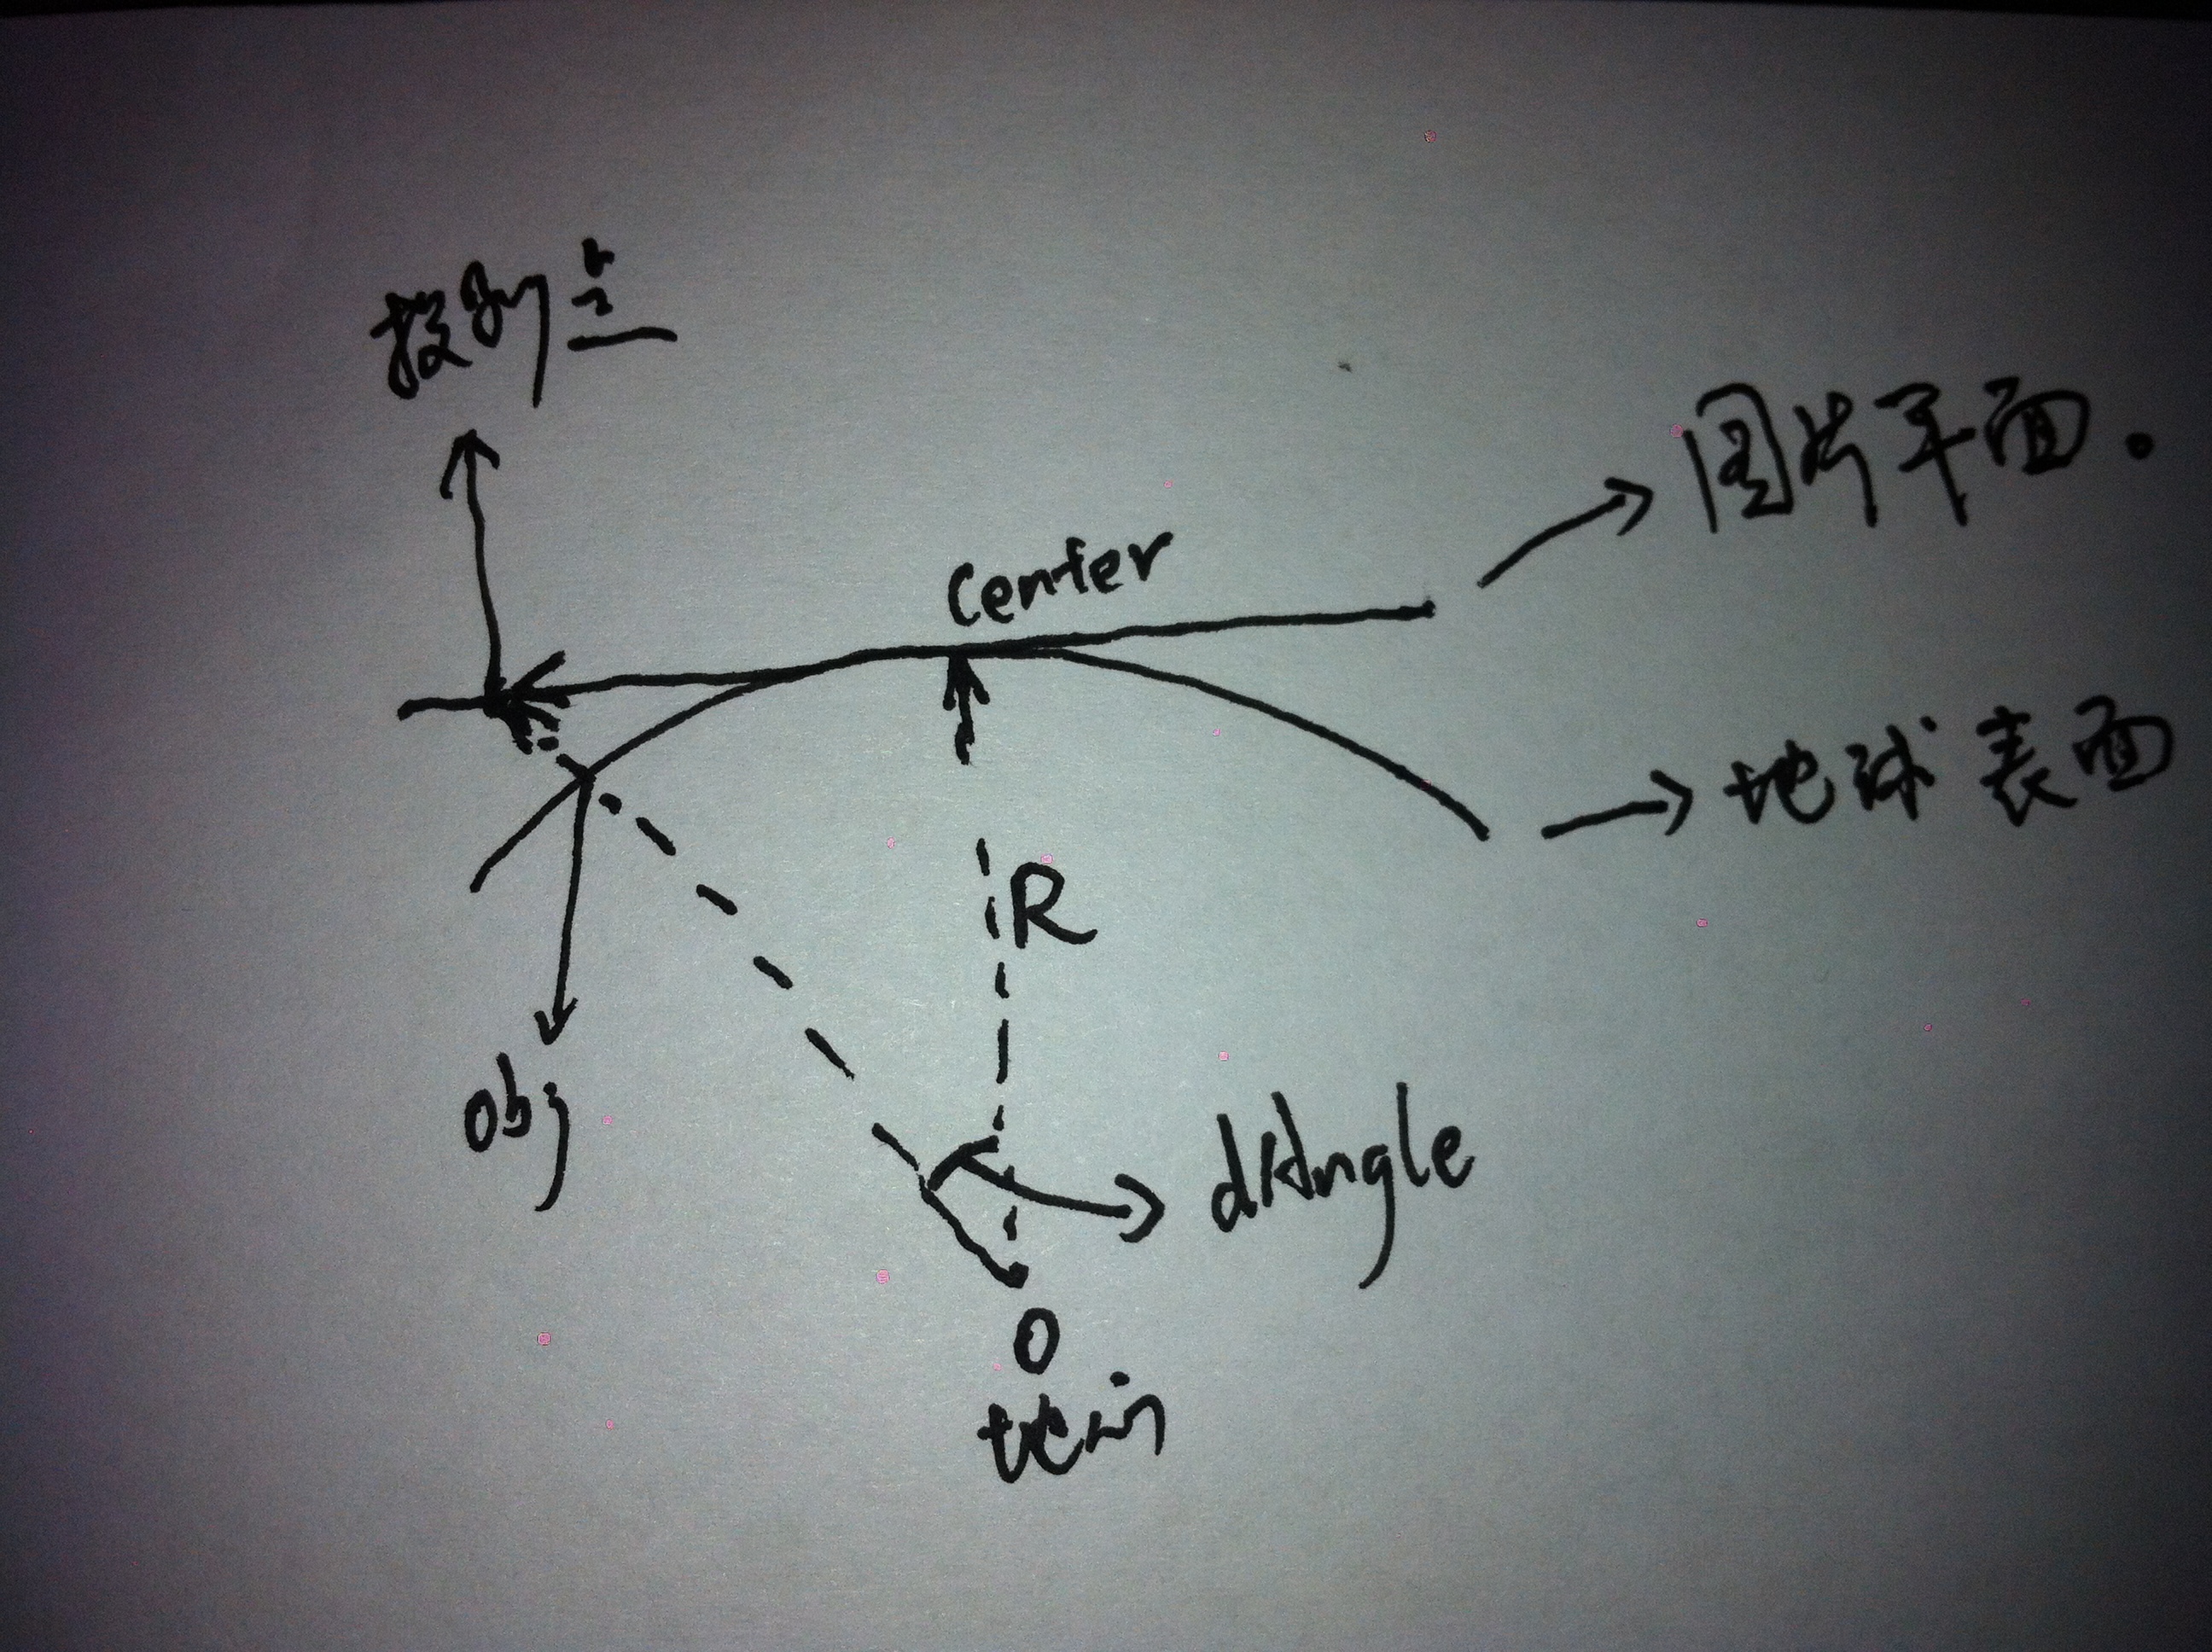 投影点
图片平面。
Center
地球表面
R
obj
dAngle
O
地心